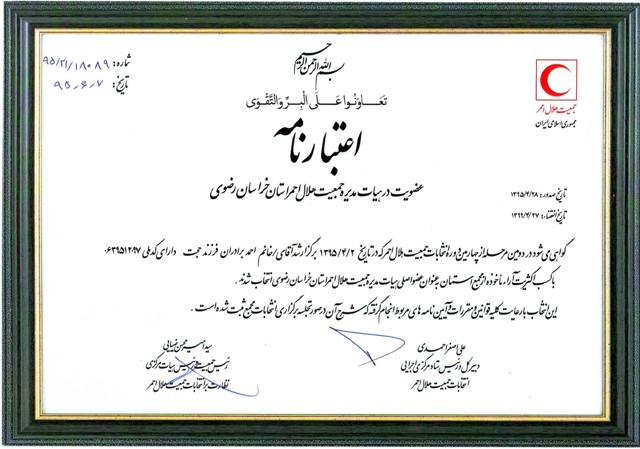 بسم الله الرحمن الرحیم
شماره: ۹۵/۲۱/۱۸۰۸۹
تاریخ: ۹۵-۶-۷
جمعیت هلال احمر
جمهوری اسلامی ایران
تعاونوا علی البر والتقوی
اعتبارنامه
عضویت در هیات مدیره جمعیت هلال احمر استان خراسان رضوی
تاریخ صدور: ۱۳۹۵/۴/۲۸
تاریخ انقضاء: ۱۳۹۹/۴/۲۷
گواهی می شود در دومین مرحله از چهارمین دوره انتخابات جمعیت هلال احمر که در تاریخ ۱۳۹۵/۴/۲ برگزار شد آقای/خانم احمد برادران فرزند حجت دارای کد ملی
با کسب اکثریت آراء ماخوذه از مجمع استان به عنوان عضو اصلی هیات مدیره جمعیت هلال احمر استان خراسان رضوی انتخاب شدند.
این انتخاب با رعایت کلیه قوانین و مقررات و آیین نامه های مربوط انجام گرفته که شرح آن در صورتجلسه برگزاری انتخابات مجمع ثبت شده است.
علی اصغر احمدی
دبیر کل و رئیس ستاد مرکزی اجرایی
انتخابات جمعیت هلال احمر
سید امیر محسن ضیایی
رئیس جمعیت و رئیس هیات مرکزی
نظارت بر انتخابات جمعیت هلال احمر